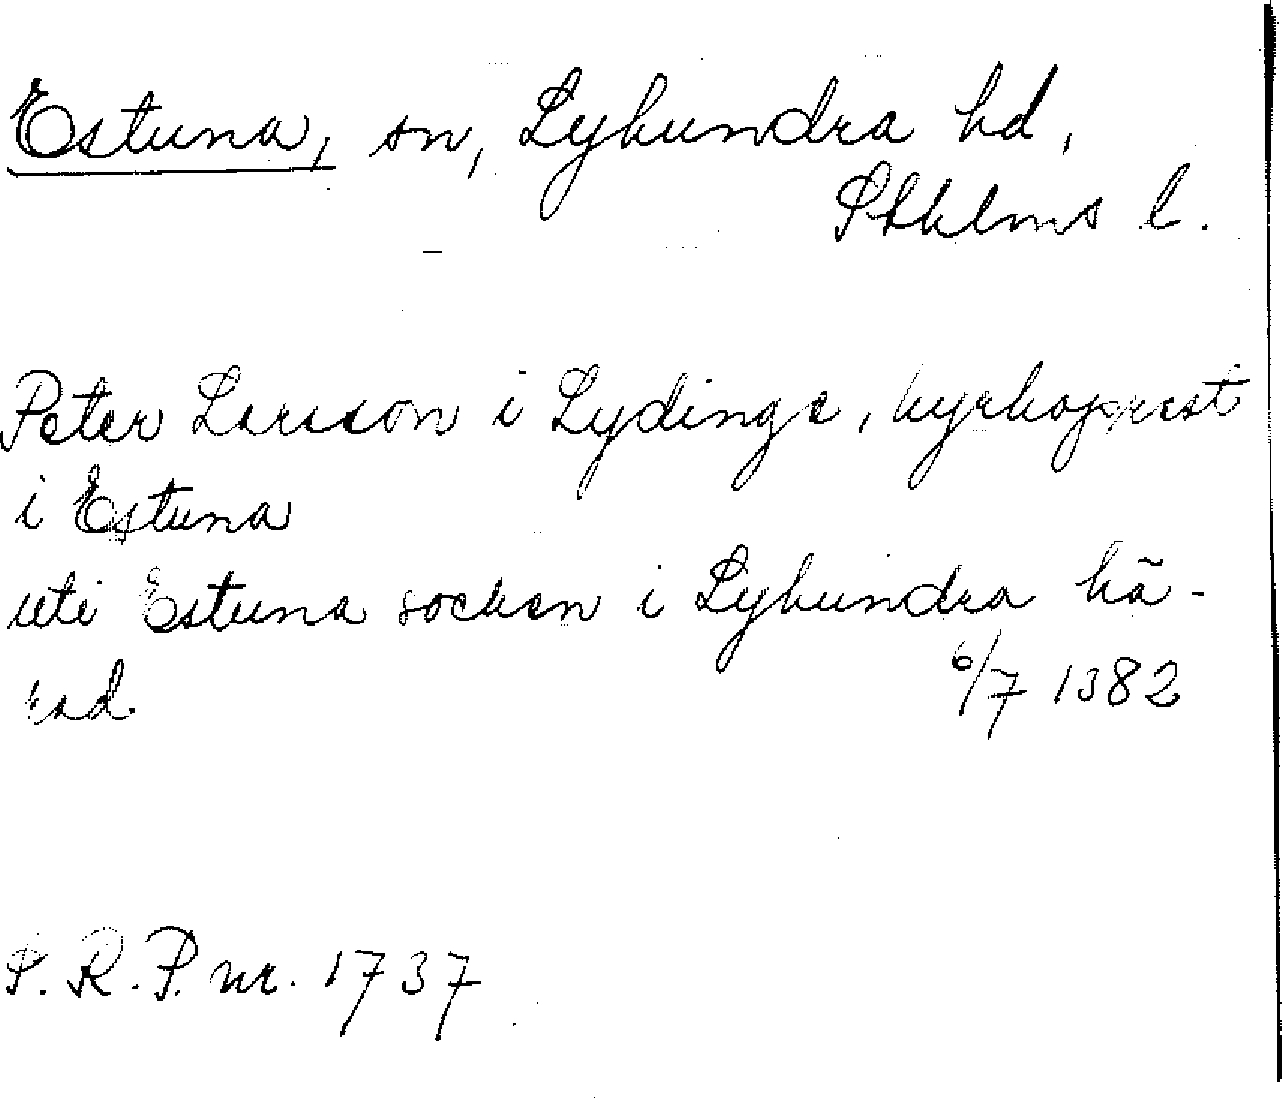 Estuna, sn, Lyhundra hd,
Sthlms l.
Peter Larsson i Lydinge, kyrkoprest
i Estuna
uti Estuna socken i Lyhundra hä-
rad. 6/7 1382
S. R. P. nr. 1737